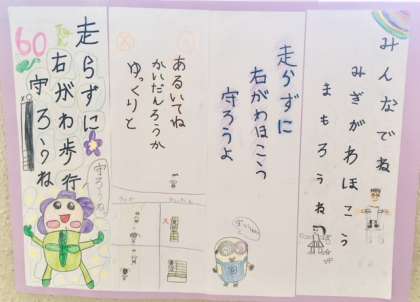 みんなでね
みぎがわほこう
まもろうね
走らずに
右がわほこう
守ろうよ
あるいてね
かいだんろうか
ゆっくりと
走らずに
右がわ歩行
守ろうね
守ろうね
60